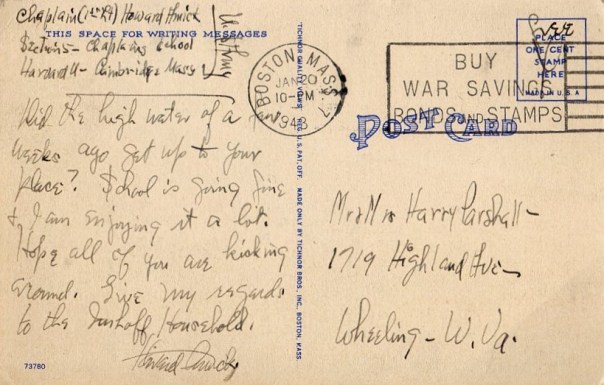 Chaplain (1st Lt) Howard
US Army
THIS SPACE FOR WRITING MESSAGES
Section 5 - Chaplains School
Harvard U - Cambridge Mass
Did the high water of a few
weeks ago get up to your
place? School is going fine
& I am enjoying it a lot.
Hope all of you are kicking
around. Give my regards
to the Household.
Howard
73760
TICHNOR QUALITY VIEWS, REG. U. S. PAT. OFF. MADE ONLY BY TICHNOR BROS., INC., BOSTON, MASS.
BOSTON, MASS.
JAN 20
10-PM
1943
BUY
WAR SAVINGS
BONDS AND STAMPS
Free
PLACE
ONE CENT
STAMP
HERE
MADE IN U.S.A
POST CARD
Mr & Mrs Harry Parshall -
1719 Highland Ave -
Wheeling - W. Va.